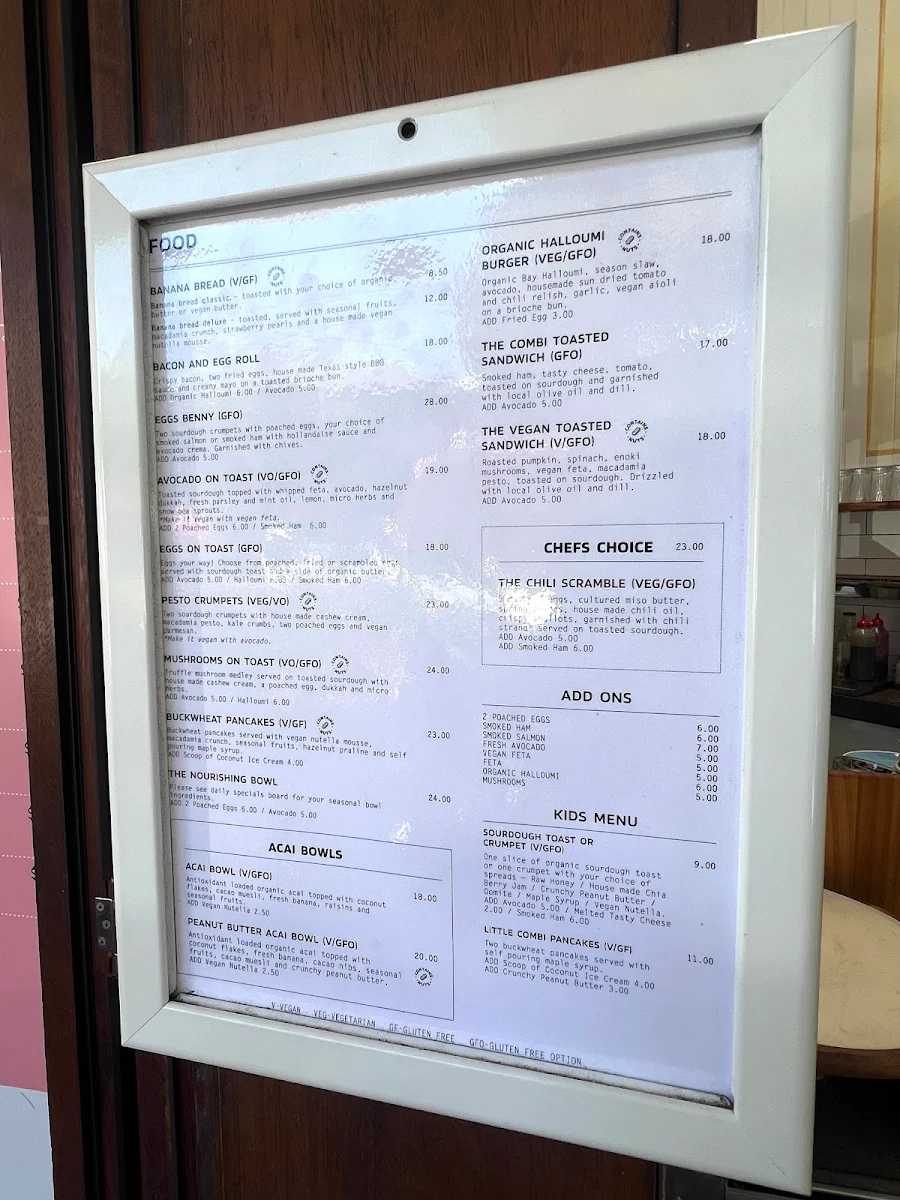 FOOD
BANANA BREAD (V/GF)
CONTAINS NUTS
Banana bread classic - toasted with your choice of organic 8.50
butter or vegan butter.
Banana bread deluxe - toasted, served with seasonal fruits, 12.00
macadamia crunch, strawberry pearls and a house made vegan
nutella mousse.
BACON AND EGG ROLL 18.00
Crispy bacon, two fried eggs, house made Texas-style BBQ
sauce and creamy mayo on a toasted brioche bun.
ADD Organic Halloumi 6.00 / Avocado 5.00
EGGS BENNY (GFO) 28.00
Two sourdough crumpets with poached eggs, your choice of
smoked salmon or smoked ham with hollandaise sauce and
avocado crema. Garnished with chives.
ADD Avocado 5.00
AVOCADO ON TOAST (VO/GFO) 19.00
CONTAINS NUTS
Toasted sourdough topped with whipped feta, avocado, hazelnut
dukkah, fresh parsley and mint oil, lemon, micro herbs and
snow pea sprouts.
*Make it vegan with vegan feta.
ADD 2 Poached Eggs 6.00 / Smoked Ham 6.00
EGGS ON TOAST (GFO) 18.00
Eggs your way! Choose from poached, fried or scrambled eggs
served with sourdough toast and a side of organic butter.
ADD Avocado 5.00 / Halloumi 6.00 / Smoked Ham 6.00
PESTO CRUMPETS (VEG/VO) 23.00
CONTAINS NUTS
Two sourdough crumpets with house made cashew cream,
macadamia pesto, kale crumbs, two poached eggs and vegan
parmesan.
*Make it vegan with avocado.
MUSHROOMS ON TOAST (VO/GFO) 24.00
CONTAINS NUTS
Truffle mushroom medley served on toasted sourdough with
house made cashew cream, a poached egg, dukkah and micro
herbs.
ADD Avocado 5.00 / Halloumi 6.00
BUCKWHEAT PANCAKES (V/GF) 23.00
CONTAINS NUTS
Buckwheat pancakes served with vegan nutella mousse,
macadamia crunch, seasonal fruits, hazelnut praline and self
pouring maple syrup.
ADD Scoop of Coconut Ice Cream 4.00
THE NOURISHING BOWL 24.00
Please see daily specials board for your seasonal bowl
ingredients.
ADD 2 Poached Eggs 6.00 / Avocado 5.00
ACAI BOWLS
ACAI BOWL (V/GFO) 18.00
Antioxidant loaded organic acai topped with coconut
flakes, cacao muesli, fresh banana, raisins and
seasonal fruits.
ADD Vegan Nutella 2.50
PEANUT BUTTER ACAI BOWL (V/GFO) 20.00
CONTAINS NUTS
Antioxidant loaded organic acai topped with
coconut flakes, fresh banana, cacao nibs, seasonal
fruits, cacao muesli and crunchy peanut butter.
ADD Vegan Nutella 2.50
ORGANIC HALLOUMI
BURGER (VEG/GFO) 18.00
CONTAINS NUTS
Organic Bay Halloumi, season slaw,
avocado, housemade sun dried tomato
and chili relish, garlic, vegan aioli
on a brioche bun.
ADD Fried Egg 3.00
THE COMBI TOASTED
SANDWICH (GFO) 17.00
Smoked ham, tasty cheese, tomato,
toasted on sourdough and garnished
with local olive oil and dill.
ADD Avocado 5.00
THE VEGAN TOASTED
SANDWICH (V/GFO) 18.00
CONTAINS NUTS
Roasted pumpkin, spinach, enoki
mushrooms, vegan feta, macadamia
pesto, toasted on sourdough. Drizzled
with local olive oil and dill.
ADD Avocado 5.00
CHEFS CHOICE 23.00
THE CHILI SCRAMBLE (VEG/GFO)
eggs, cultured miso butter,
house made chili oil,
garnished with chili
served on toasted sourdough.
ADD Avocado 5.00
ADD Smoked Ham 6.00
ADD ONS
2 POACHED EGGS 6.00
SMOKED HAM 6.00
SMOKED SALMON 7.00
FRESH AVOCADO 5.00
VEGAN FETA 5.00
FETA 5.00
ORGANIC HALLOUMI 6.00
MUSHROOMS 5.00
KIDS MENU
SOURDOUGH TOAST OR
CRUMPET (V/GFO) 9.00
One slice of organic sourdough toast
or one crumpet with your choice of
spreads - Raw Honey / House made Chia
Berry Jam / Crunchy Peanut Butter /
Domite / Maple Syrup / Vegan Nutella.
ADD Avocado 5.00 / Melted Tasty Cheese
2.00 / Smoked Ham 6.00
LITTLE COMBI PANCAKES (V/GF) 11.00
Two buckwheat pancakes served with
self pouring maple syrup.
ADD Scoop of Coconut Ice Cream 4.00
ADD Crunchy Peanut Butter 3.00
V-VEGAN VEG-VEGETARIAN GF-GLUTEN FREE GFO-GLUTEN FREE OPTION